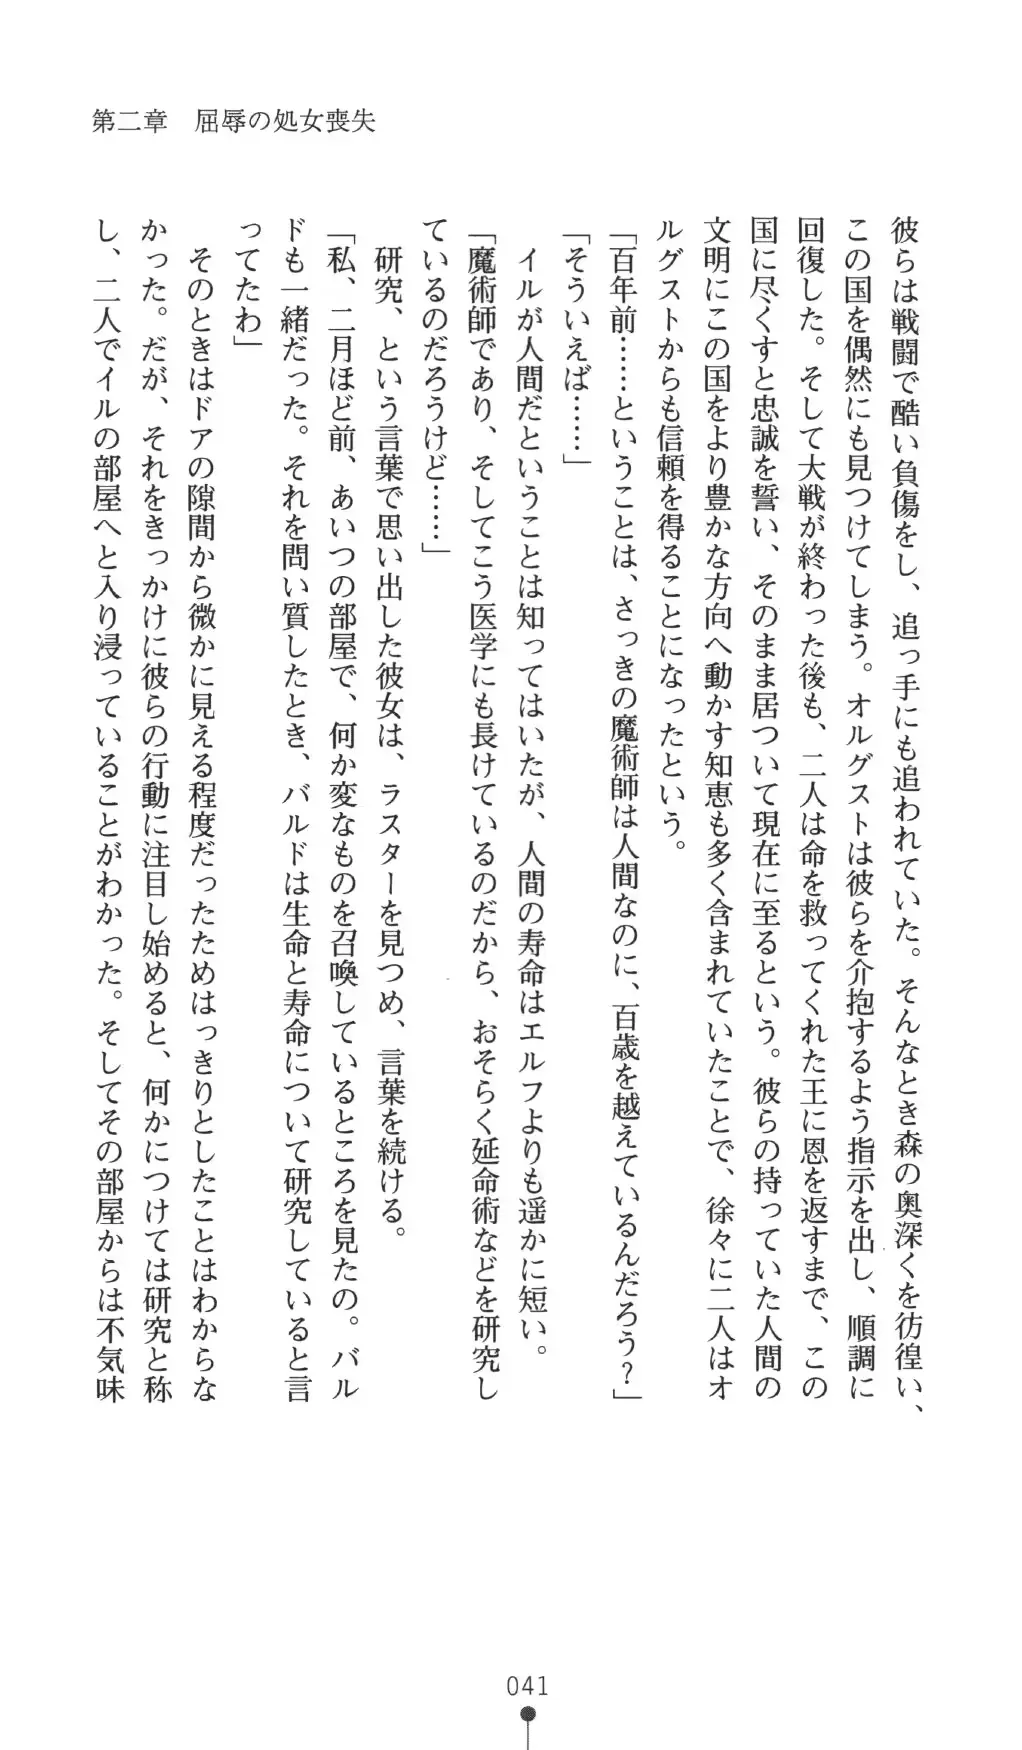 第二章　屈辱の処女喪失
彼らは戦闘で酷い負傷をし、追っ手にも追われていた。そんなとき森の奥深くを彷徨い、
この国を偶然にも見つけてしまう。オルグストは彼らを介抱するよう指示を出し、順調に
回復した。そして大戦が終わった後も、二人は命を救ってくれた王に恩を返すまで、この
国に尽くすと忠誠を誓い、そのまま居ついて現在に至るという。彼らの持っていた人間の
文明にこの国をより豊かな方向へ動かす知恵も多く含まれていたことで、徐々に二人はオ
ルグストからも信頼を得ることになったという。
「百年前……ということは、さっきの魔術師は人間なのに、百歳を越えているんだろう？」
「そういえば……」
　イルが人間だということは知ってはいたが、人間の寿命はエルフよりも遥かに短い。
「魔術師であり、そしてこう医学にも長けているのだから、おそらく延命術などを研究し
ているのだろうけど……」
　研究、という言葉で思い出した彼女は、ラスターを見つめ、言葉を続ける。
「私、二月ほど前、あいつの部屋で、何か変なものを召喚しているところを見たの。バル
ドも一緒だった。それを問い質したとき、バルドは生命と寿命について研究していると言
ってたわ」
　そのときはドアの隙間から微かに見える程度だったためはっきりとしたことはわからな
かった。だが、それをきっかけに彼らの行動に注目し始めると、何かにつけては研究と称
し、二人でイルの部屋へと入り浸っていることがわかった。そしてその部屋からは不気味
041